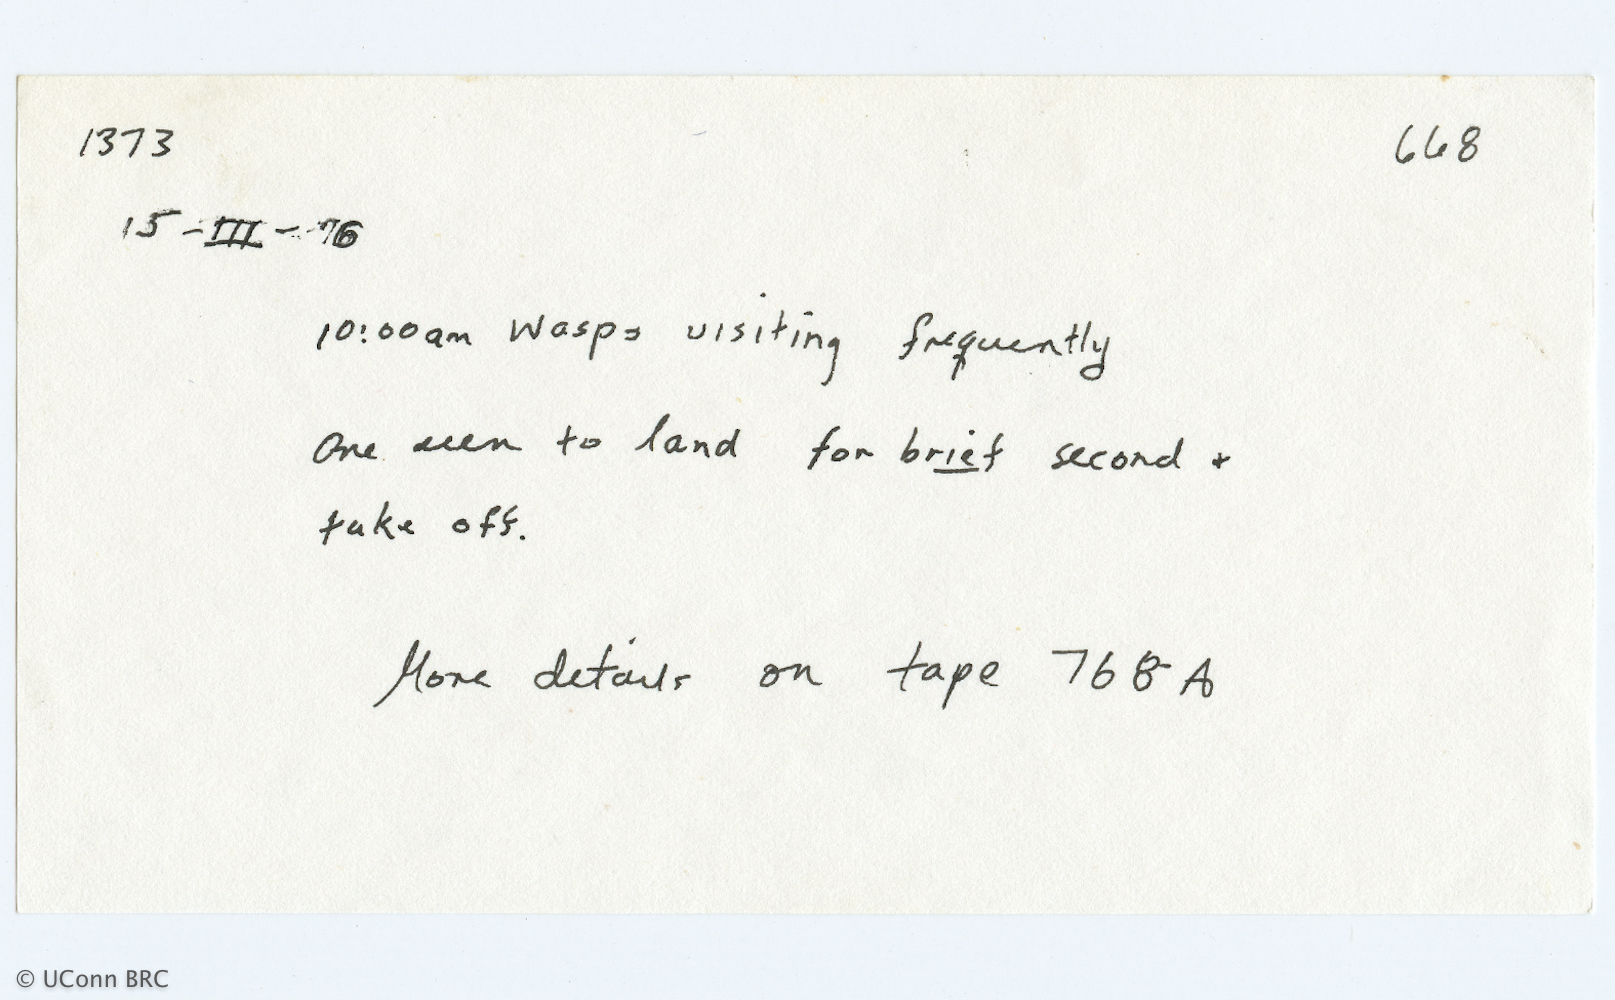 1373 668
15-III-76
10:00am Wasps visiting frequently
One seen to land for brief second +
take off.
More details on tape 768A
© UConn BRC